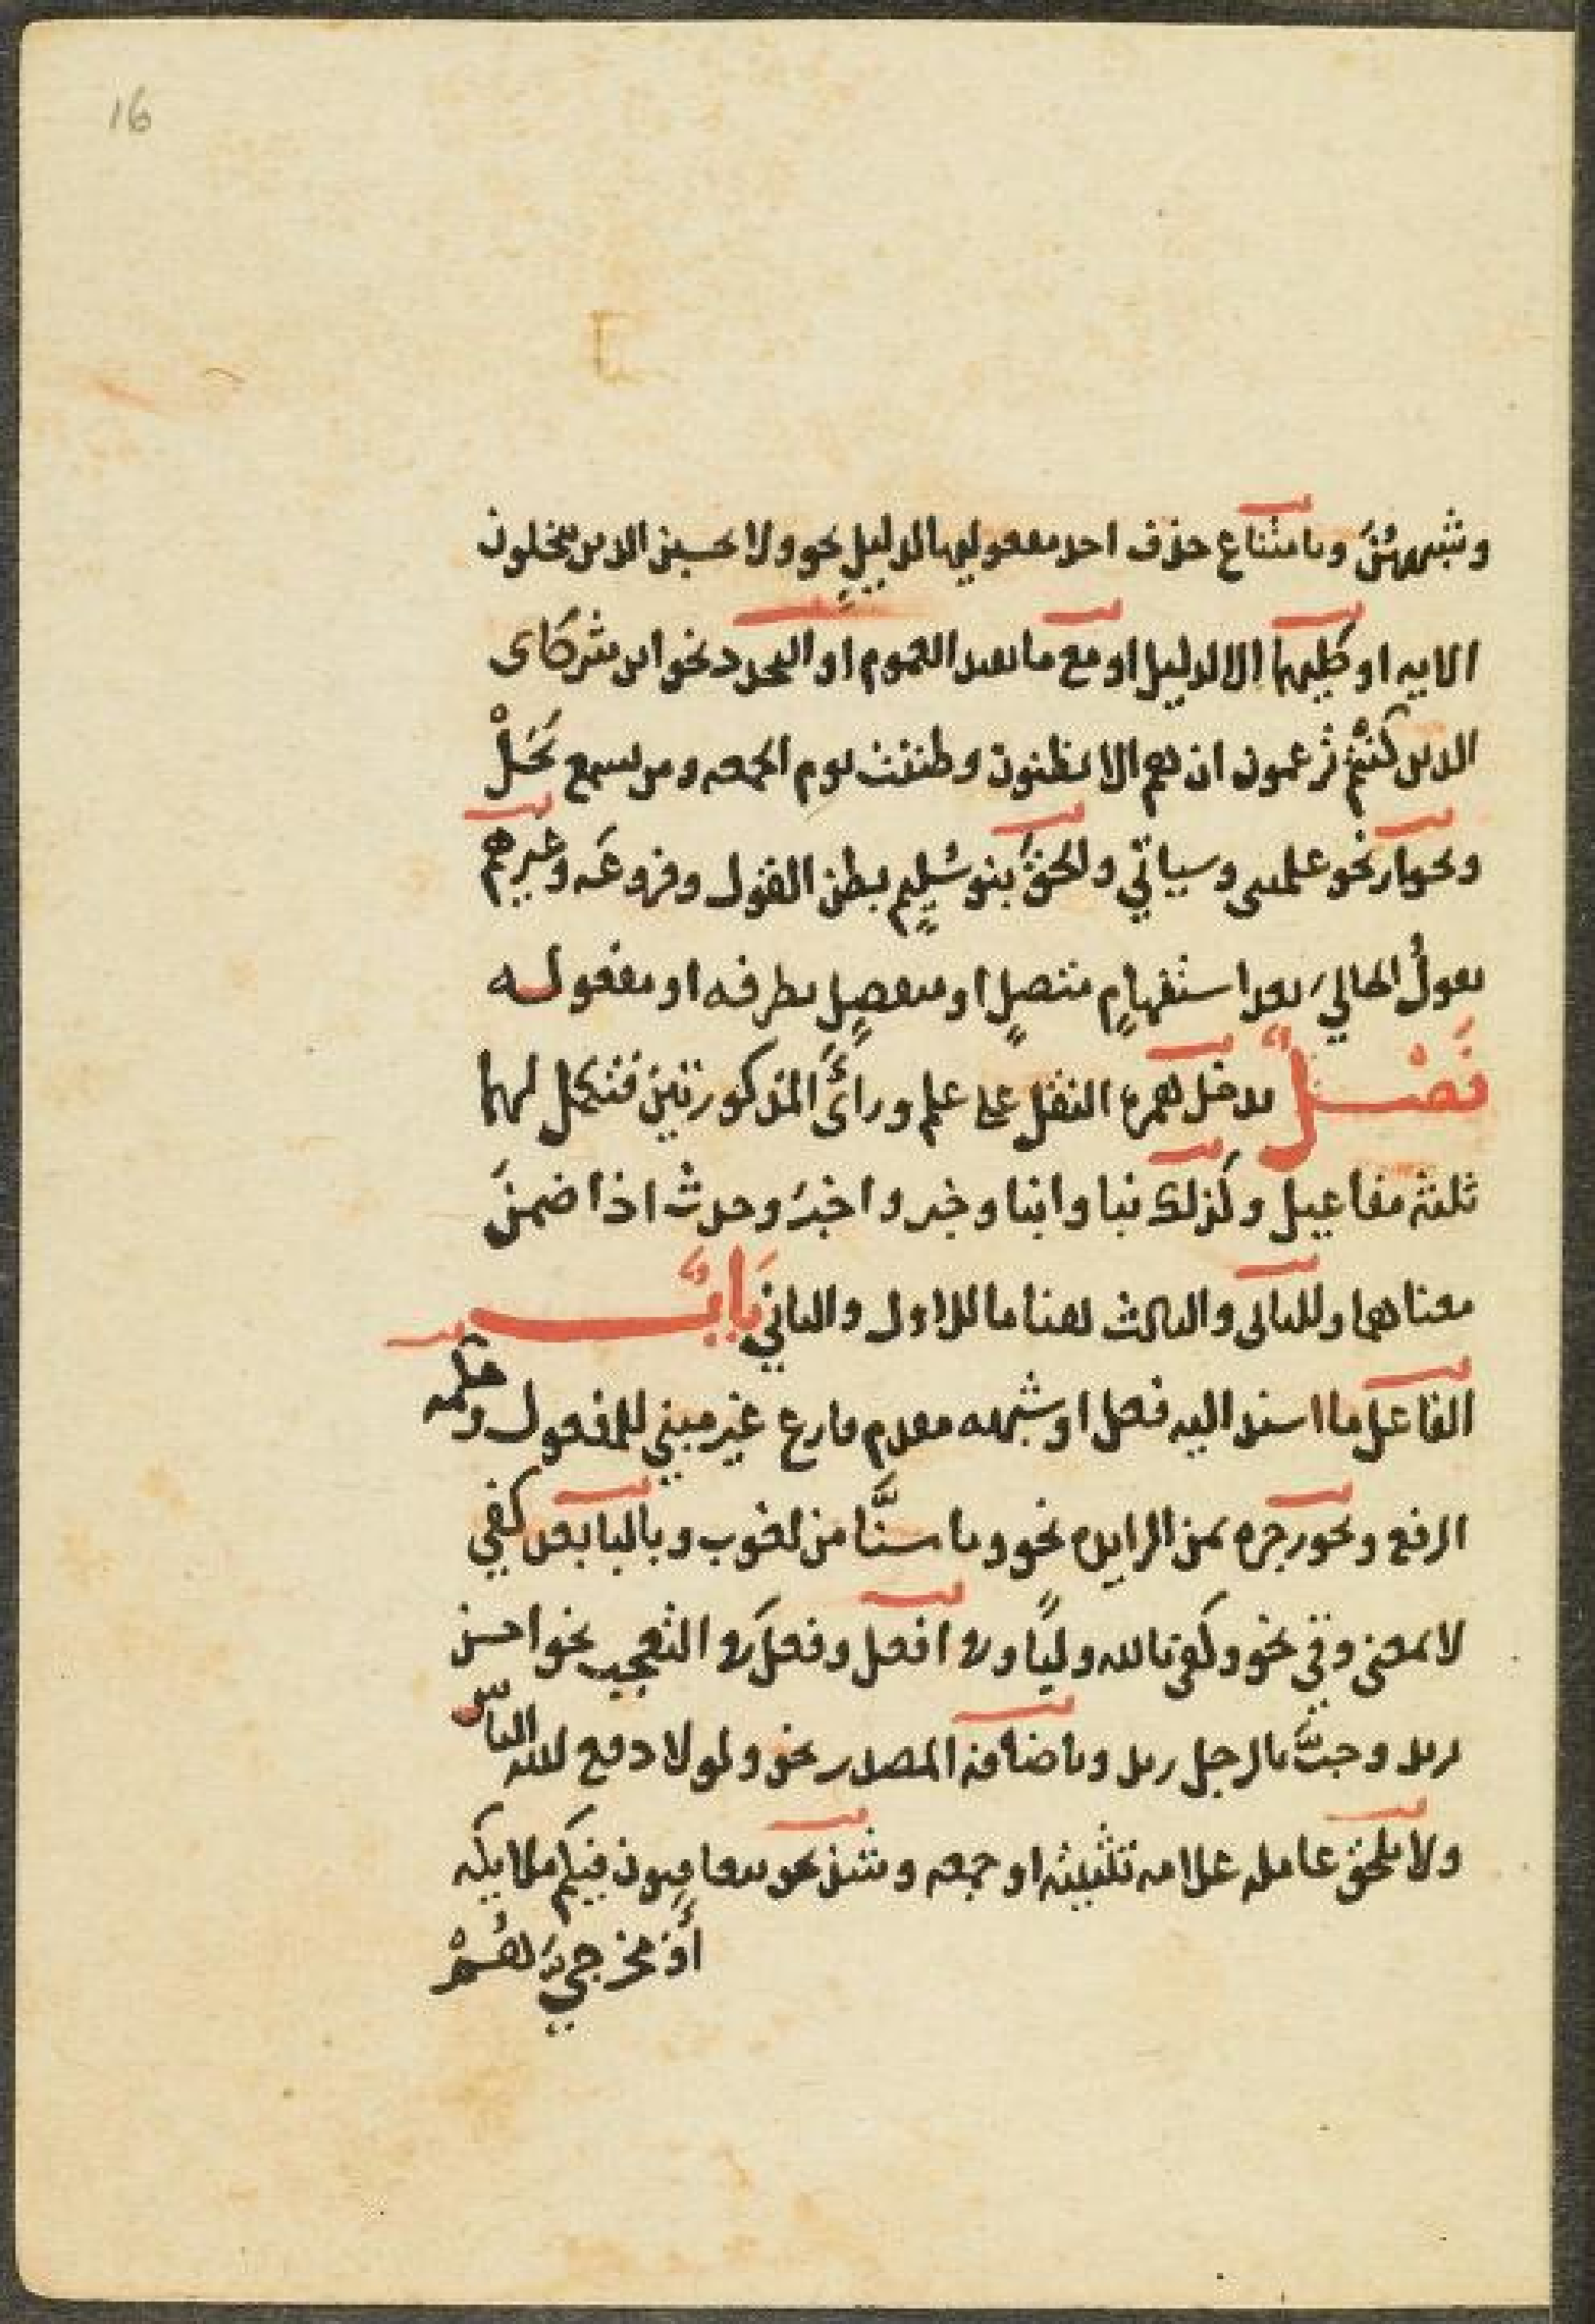 16
وشبههنّ وبامتناع حذف احد مفعوليها الا لدليل نحو ولا يحسبن الذين يبخلون
الايه او كليهما الا لدليل او مع ما يفيد العموم او التجدد نحو اين شركاى
الذين كنتم تزعمون ان هم الا يظنون وظننت يوم الجمعه ومن يسمع يَخَلْ
وبجواز نحو علمتنى وسياتي والحقَ بنو سُليم بظن القول وفروعَه وغيرهم
يقولُ الحاليَ بعد استفهامٍ متصلٍ او منفصلٍ بظرفه او مفعوله
فَصْلٌ يدخل همزه النقل على علم وراىَ المذكورتين فتكمل لهما
ثلثه مفاعيل وكذلك نبا وانبا وخبر واخبرَ وحدث اذا ضمنَّ
معناهما وللثانى والثالث هنا ما للاول والثاني بَابٌ
الفاعل ما اسند اليه فعل او شبهه مقدم فارغ غير مبني للمفعول وحكمه
الرفع ويجوز جره بمن الزايده نحو وما مسنا من لغوب وبالبا بعد كفي
لا بمعنى وقي نحو وكفى بالله وليًا وفى افعل وفعل فى التعجب نحو احسن
بزيد وحبَّ بالرجل زيد وباضافه المصدر نحو ولولا دفع الله الناس
ولا يلحق عامله علامه تثنيته او جمعه وشذ نحو يتعاقبون فيكم ملايكه
أوَ مُخرِجيَّ هُمْ